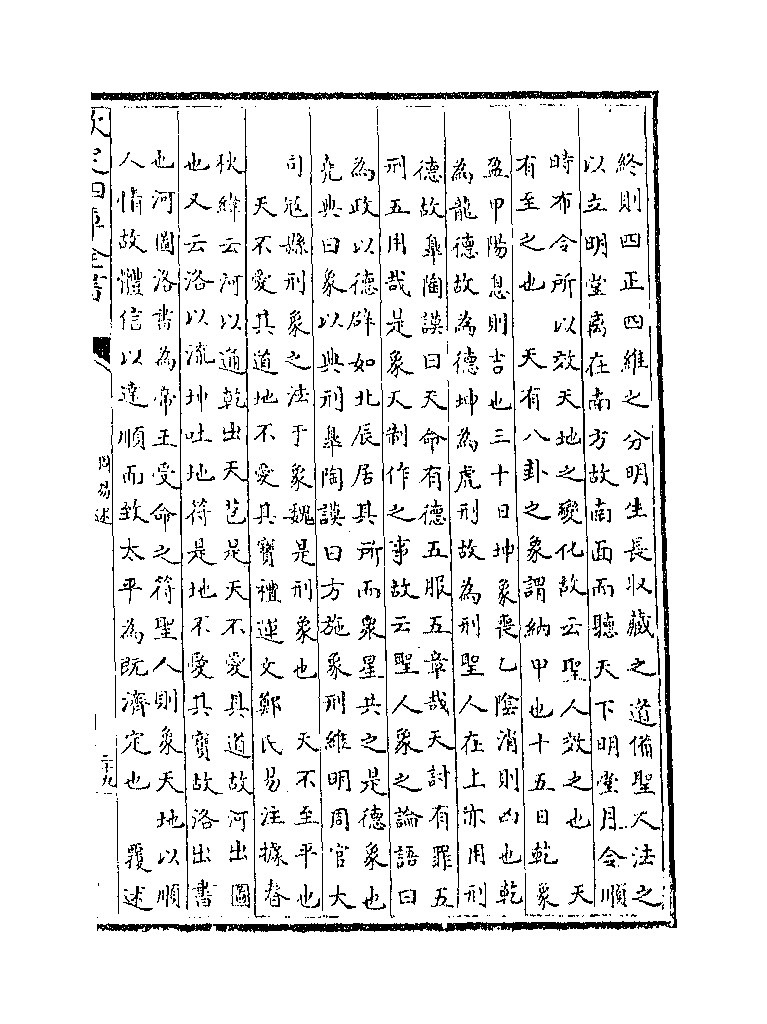 終則四正四維之分明生長收藏之道備聖人法之
以立明堂离在南方故南面而聽天下明堂月令順
時布令所以效天地之變化故云聖人效之也　天
有至之也　天有八卦之象謂納甲也十五日乾象
盈甲陽息則吉也三十日坤象喪乙陰消則凶也乾
為龍德故為德坤為虎刑故為刑聖人在上亦用刑
德故臯陶謨曰天命有德五服五章哉天討有罪五
刑五用哉是象天制作之事故云聖人象之論語曰
為政以德辟如北辰居其所而衆星共之是德象也
堯典曰象以典刑臯陶謨曰方施象刑維明周官大
司寇縣刑象之法于象魏是刑象也　天不至平也
天不愛其道地不愛其寶禮運文鄭氏易注據春
秋緯云河以通乾出天苞是天不愛其道故河出圖
也又云洛以流坤吐地符是地不愛其寶故洛出書
也河圖洛書為帝王受命之符聖人則象天地以順
人情故體信以達順而致太平為既濟定也　覆述
欽定四庫全書
周易述
二十九